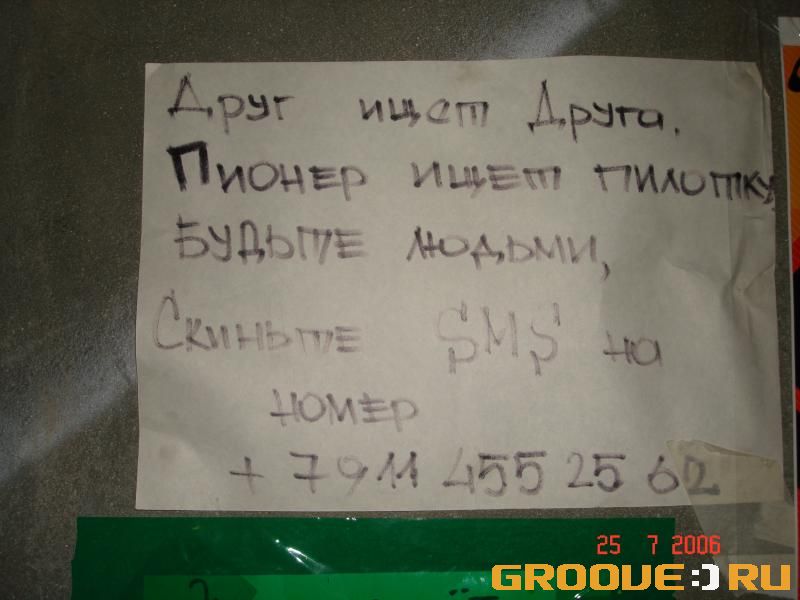 Друг ищет Друга.
Пионер ищет пилотку
Будьте людьми,
Скиньте SMS на
номер
+ 7 911 455 25 62
25 7 2006
GROOVE:)RU